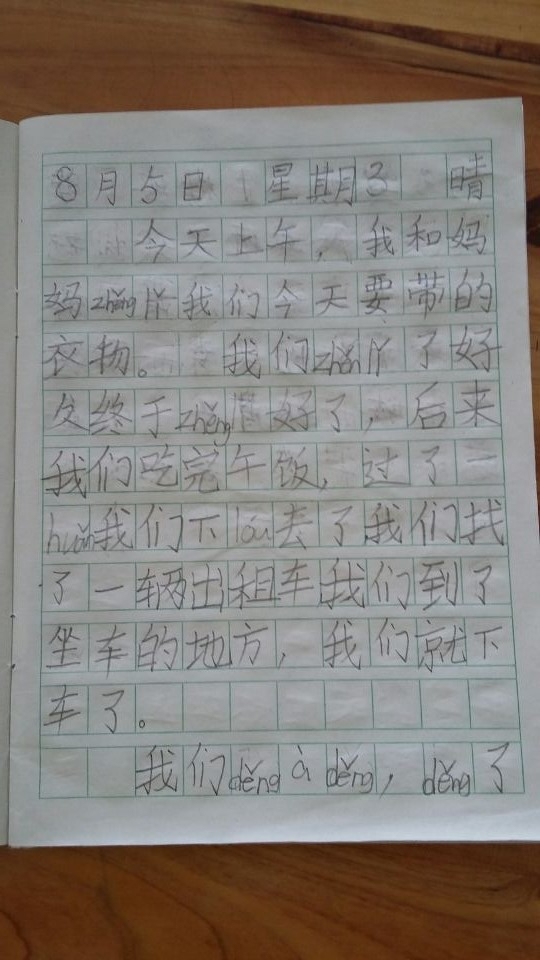 8月5日 星期3 晴
今天上午，我和妈
妈zhěnglǐ我们今天要带的
衣物。我们zhěnlǐ了好
久终于zhěnglǐ好了，后来
我们吃完午饭，过了一
huǎn我们下lóu去了我们找
了一辆出租车我们到了
坐车的地方，我们就下
车了。
我们děng à děng，děng了